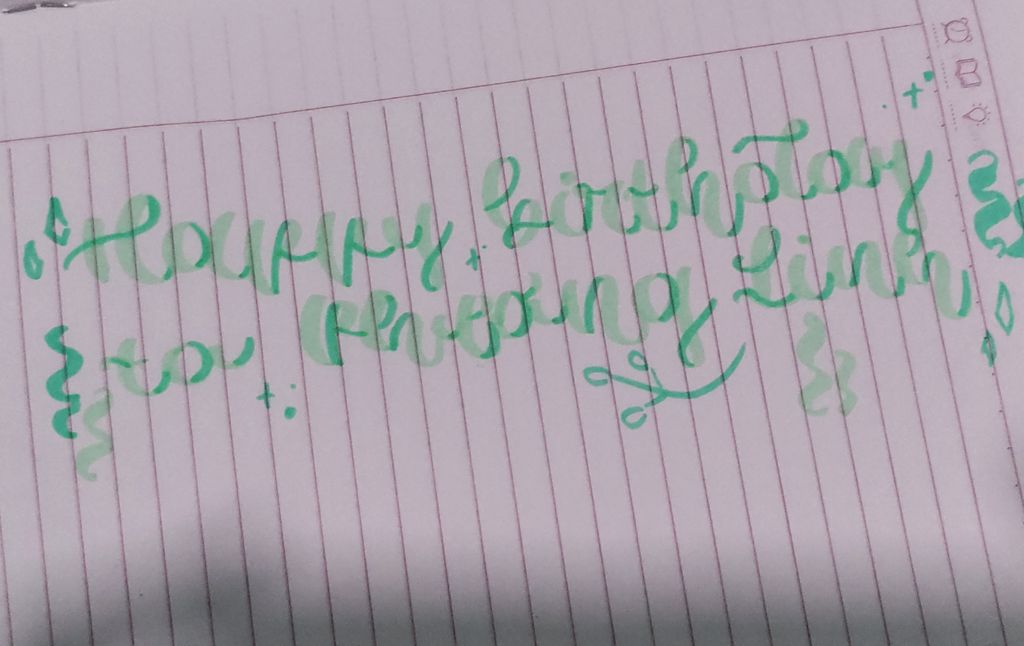 Happy birthday
to Phương Linh